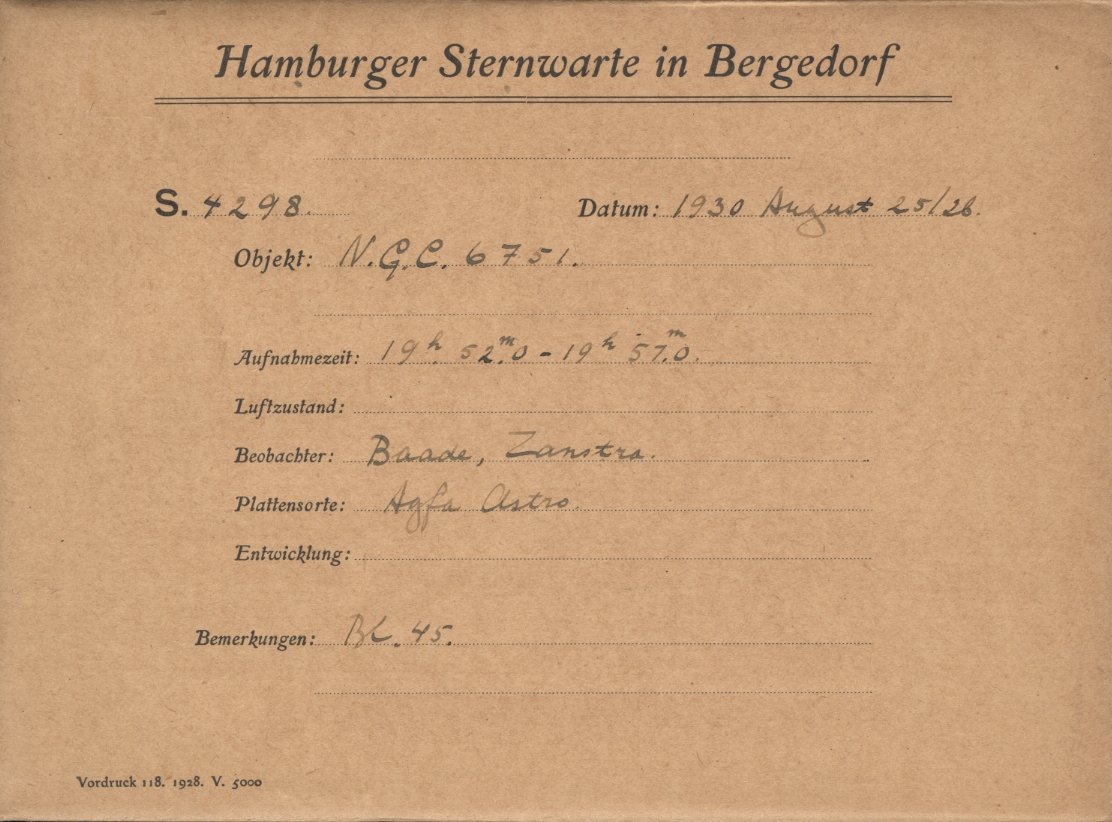 Hamburger Sternwarte in Bergedorf
S. 4298. Datum: 1930 August 25/26.
Objekt: N.G.C. 6751.
Aufnahmezeit: 19h 52m.0 - 19h 57m.0.
Luftzustand:
Beobachter: Baade, Zanstra.
Plattensorte: Agfa Astro.
Entwicklung:
Bemerkungen: Bl. 45.
Vordruck 118. 1928. V. 5000